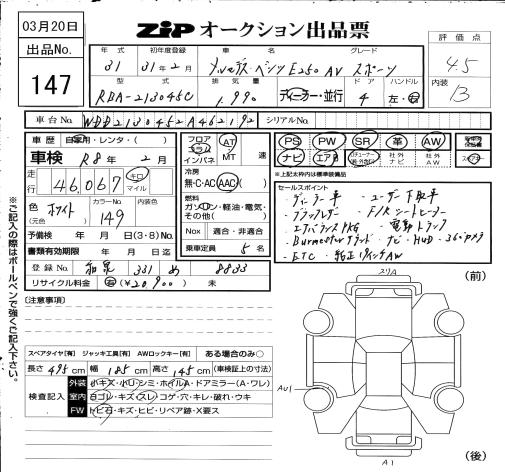 03月20日
ZiP オークション出品票
出品No.
147
評価点
4.5
内装
B
年式 初年度登録 車名 グレード
31 31年2月 メルセデス・ベンツ E250 AV スポーツ
型式 排気量 ドア ハンドル
RBA-213045C 1,990 ディーラー・並行 4 左・右
車台No. WDD2130452A462192 シリアルNo.
車歴 自家用・レンタ・( )
車検 R8年2月
走行 46,067 キロ マイル
色 (元色) ホワイト カラーNo. 149 内装色
予備検 年 月 日(3・8)No.
書類有効期限 年 月 日迄
登録No. 和泉 331 め 8833
リサイクル料金 有(¥20,900) 未
フロア コラム インパネ AT MT 速
冷房 無・C・AC AAC
燃料 ガソリン・軽油・電気・その他( )
Nox 適合・非適合
乗車定員 5名
PS PW SR 革 AW
ナビ エアB 社外ナビ 社外AW
*上記太枠内は標準装備品
セールスポイント
・ディーラー車 ・ユーザー下取車
・ブラックレザー ・F/Rシートヒーター
・エアバランスPKG ・電動トランク
・Burmesterサウンド ・ナビ・HUD・360°カメラ
・ETC ・純正19インチAW
※ご記入の際はボールペンで強くご記入下さい。
[注意事項]
スペアタイヤ[有] ジャッキ工具[有] AWロックキー[有] ある場合のみ○
長さ 495cm 幅 185cm 高さ 145cm (車検証上の寸法)
検査記入
外装 小キズ・小U・シミ・ホイルA・ドアミラー(A・ワレ)
室内 ヨゴレ・キズ・スレ・コゲ・穴・キレ・破れ・ウキ
FW トビ石・キズ・ヒビ・リペア跡・X要ス
(前)
スリA
AU1
A1
(後)